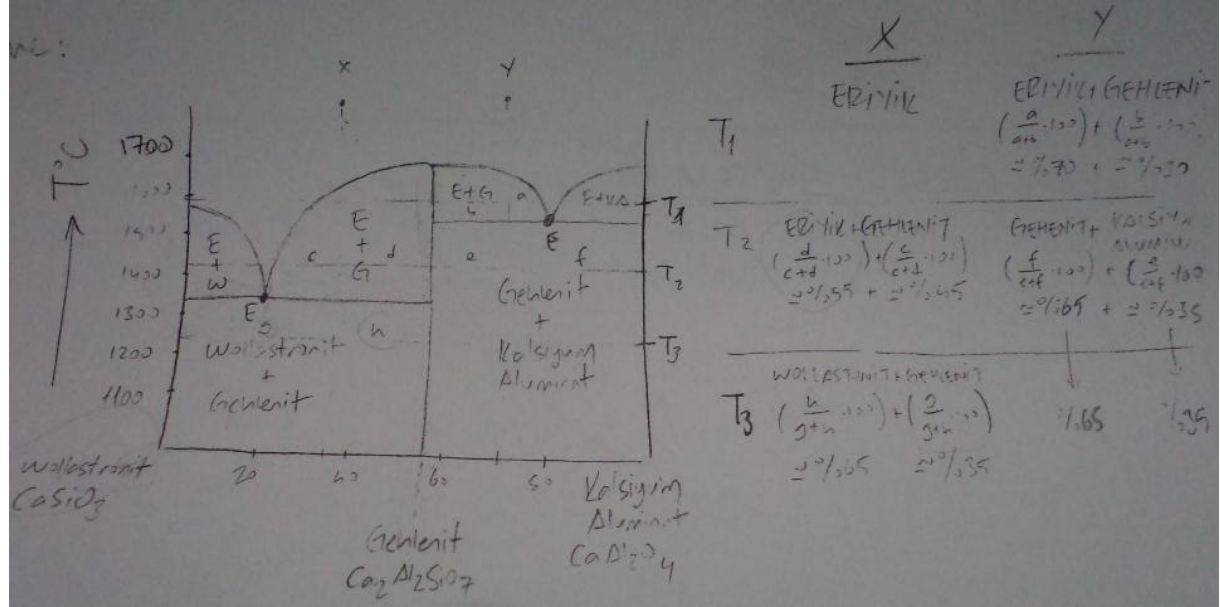 X
Y
T°C
1700
1400
1300
1200
1100
E
+
W
E
+
G
c
d
E+G
b
a
E
e
f
E
g
h
T1
T2
T3
Wollastronit
+
Gehlenit
Gehlenit
+
Kalsiyum
Aluminat
20
40
60
80
Wollastronit
CaSiO3
Gehlenit
Ca2Al2SiO7
Kalsiyum
Aluminat
CaAl2O4
X
Y
ERİYİK
ERİYİK+GEHLENİ
T1
(a/a+b .100) + (b/a+b .100
≈ %70 + ≈ %30
T2
ERİYİK+GEHLENİT
(d/c+d .100) + (c/c+d .100)
≈ %55 + ≈ %45
(f/e+f .100) + (e/e+f .100
≈ %65 + ≈ %35
T3
WOLLASTONİT+GEHLENİT
(h/g+h .100) + (g/g+h .100)
≈ %65 ≈ %35
%65 %35